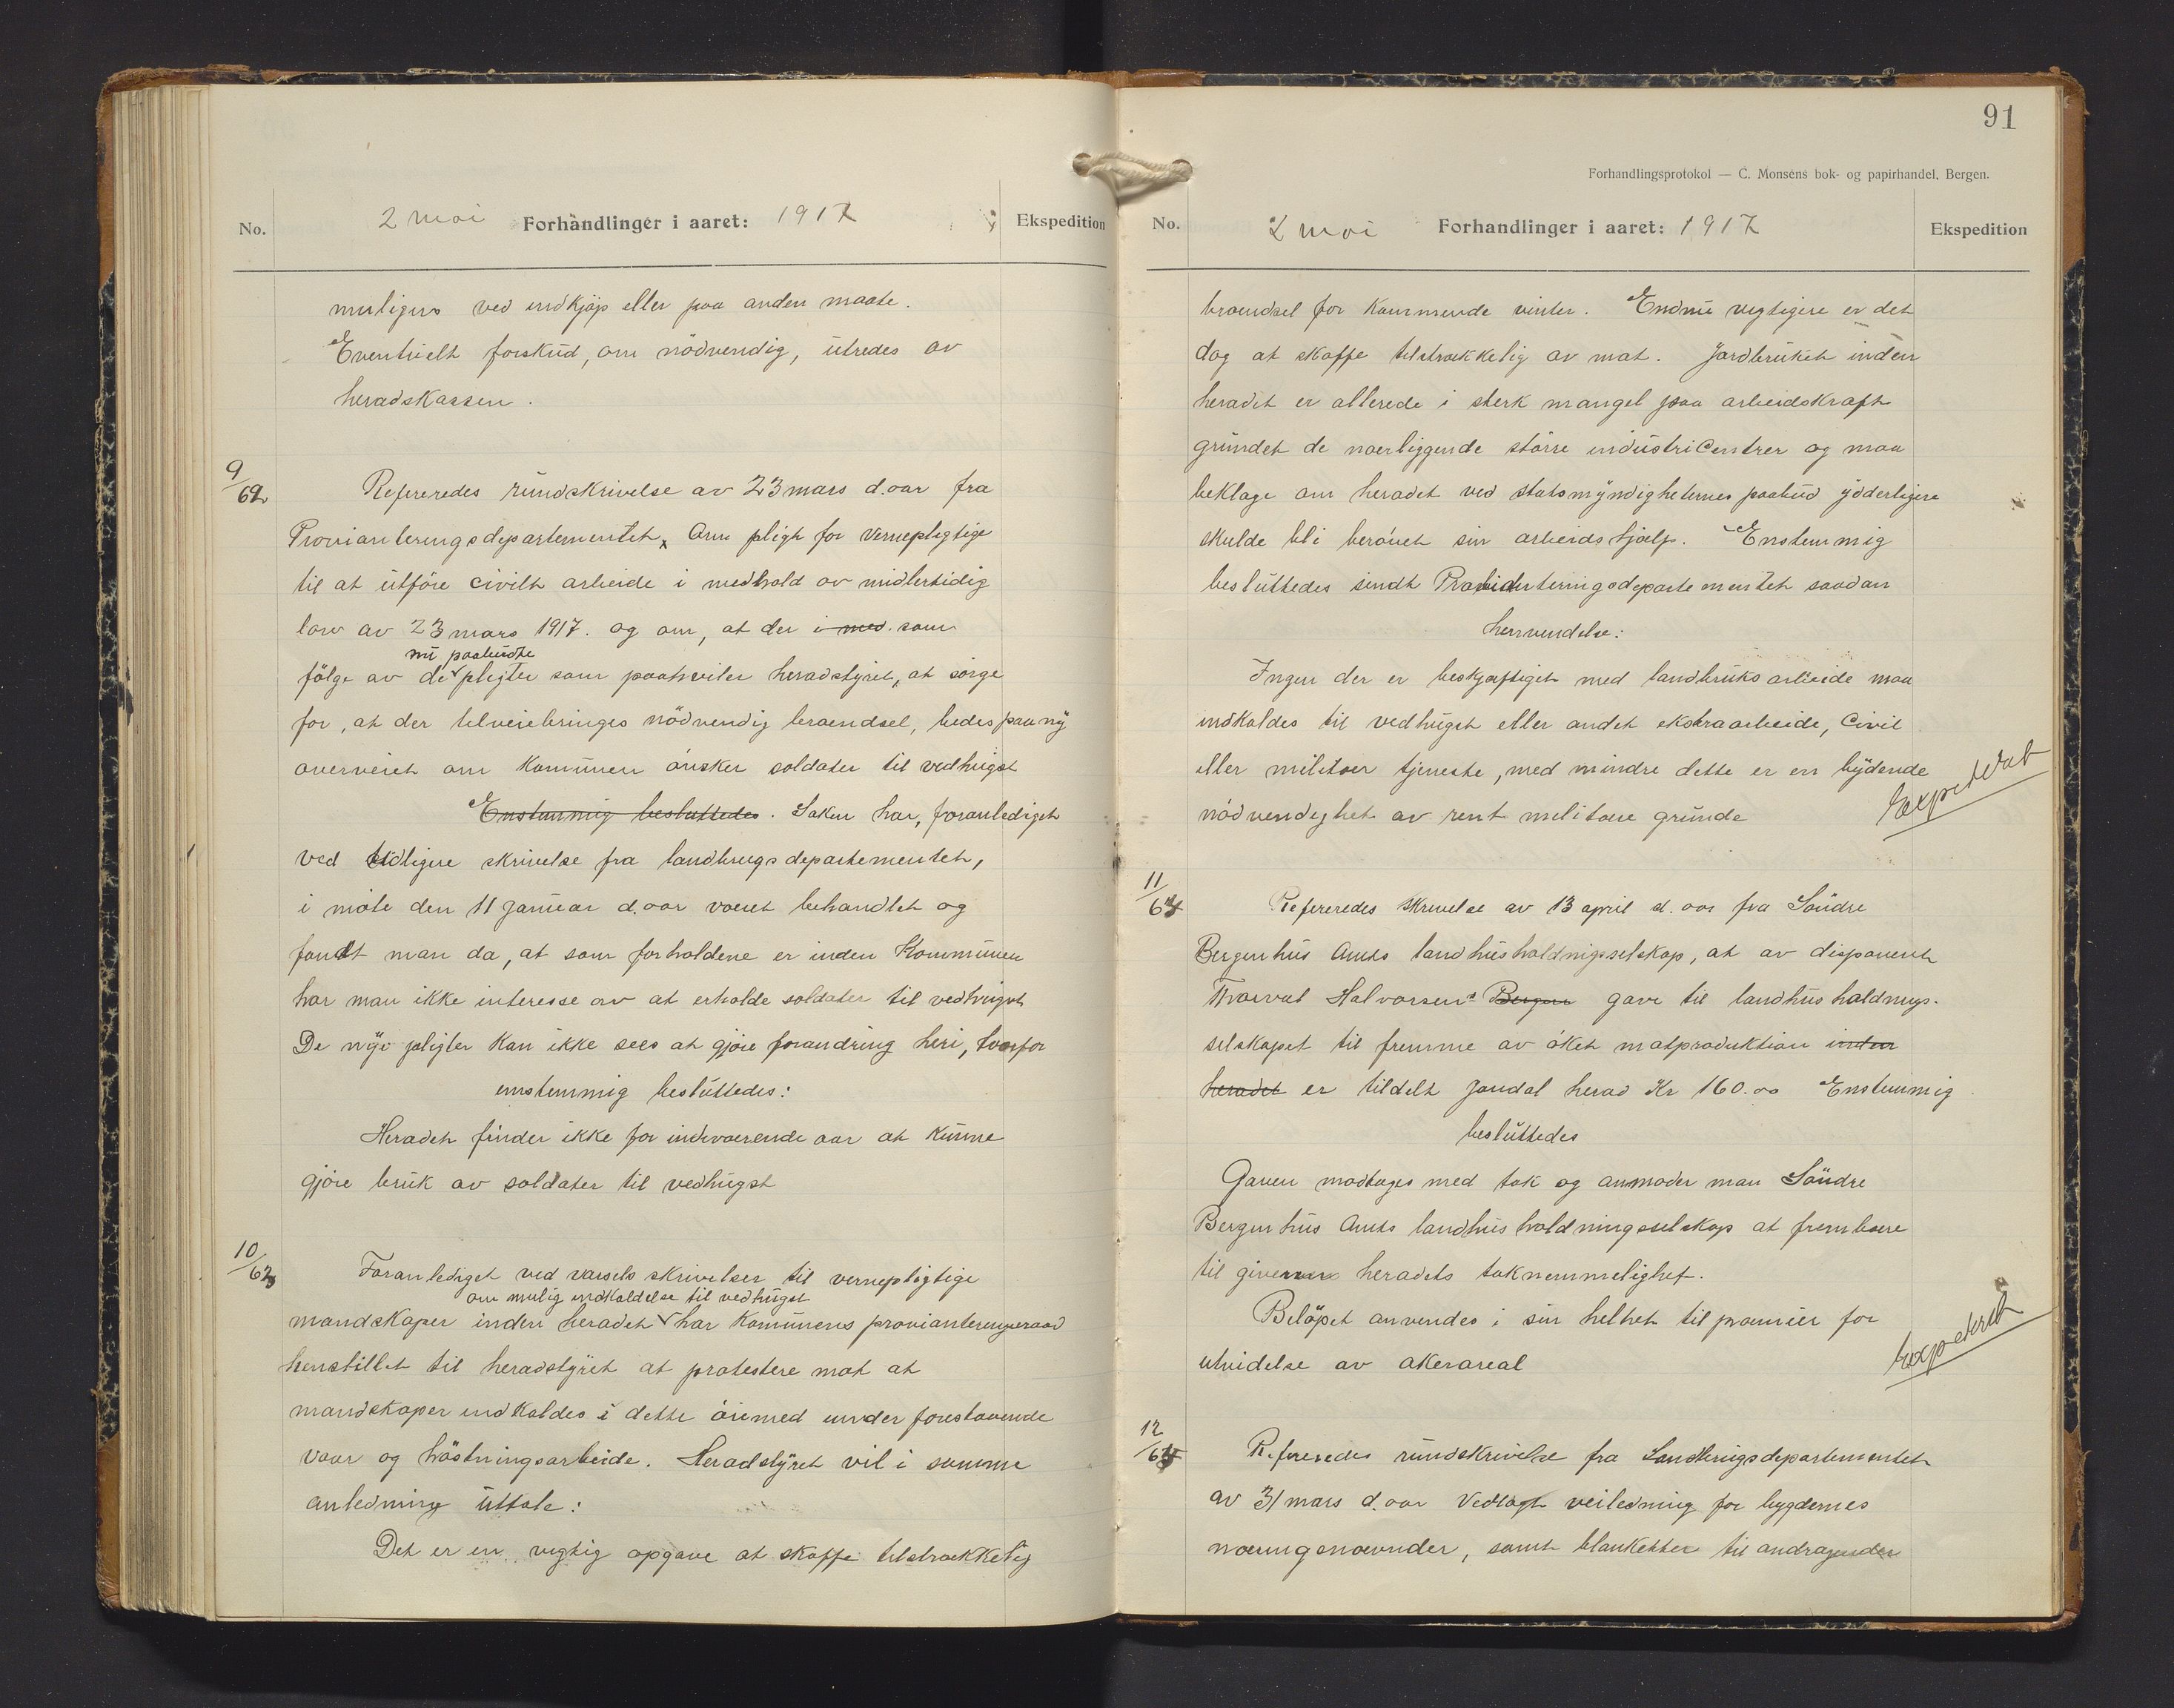 No.
2 mai Forhandlinger i aaret: 1917
Ekspedition
muligens ved indkjöp eller paa anden maate.
Eventuelt forskud, om nödvendig, utredes av
heradskassen.
9/62
Refereredes rundskrivelse av 23 mars d.aar fra
Provianteringsdepartementet, Om pligt for vernepligtige
til at utföre civilt arbeide i medhold av midlertidig
lov av 23 mars 1917. og om, at der i med. som
nu paabudte
fölge av de pligter som paahviler heradstyret, at sörge
for, at der tilveiebringes nödvendig braendsel, bedes paa ny
overveiet om Kommunen önsker soldater til vedhugst
Enstemmig besluttedes. Saken har, foranlediget
ved tidligere skrivelse fra landbrugsdepartementet,
i möte den 11 januar d.aar vaeret behandlet og
fandt man da, at som forholdene er inden Kommunen
har man ikke interesse av at erholde soldater til vedhugst
De nye pligter kan ikke sees at gjöre forandring heri, hvorfor
enstemmig besluttedes:
Heradet finder ikke for indevaerende aar at kunne
gjöre bruk av soldater til vedhugst
10/63
Foranlediget ved varsels skrivelser til vernepligtige
om mulig indkaldelse til vedhugst
mandskaper inden heradet har Kommunens provianteringsraad
henstillet til heradstyret at protestere mot at
mandskaper indkaldes i dette öiemed under forestaaende
vaar og höstningsarbeide. Heradstyret vil i samme
anledning uttale:
Det er en vigtig opgave at skaffe tilstraekkelig
91
Forhandlingsprotokol — C. Monsens bok- og papirhandel, Bergen.
No.
2 mai Forhandlinger i aaret: 1917
Ekspedition
braendsel for kommende vinter. Endnu vigtigere er det
dog at skaffe tilstraekkelig av mat. Jordbruket inden
heradet er allerede i sterk mangel paa arbeidskraft
grundet de naerliggende större industricentrer og maa
beklage om heradet ved statsmyndighetenes paabud ydderligere
skulde bli beröivet sin arbeidshjaelp. Enstemmig
besluttedes sendt Provianteringsdepartementet saadan
henvendelse:
Ingen der er beskjaeftiget med landbruksarbeide maa
indkaldes til vedhugst eller andet ekstraarbeide, civil
eller militaer tjeneste, med mindre dette er en bydende
nödvendighet av rent militaere grunde
Expedert
11/64
Refereredes skrivelse av 13 april d.aar fra Söndre
Bergenhus Amts landhusholdningsselskap, at av disponent
Thorval Halvorsens Bergen gave til landhusholdnings-
selskapet til fremme av öket matproduktion inden
heradet er tildelt Jondal herad Kr 160.00 Enstemmig
besluttedes
Gaven modtages med tak og anmoder man Söndre
Bergenhus Amts landhusholdningsselskap at frembaere
til giveren heradets taknemmelighet.
Belöpet anvendes i sin helhet til praemier for
utvidelse av akerareal
Expedert
12/65
Refereredes rundskrivelse fra Landbrugsdepartementet
av 31 mars d.aar Vedlagt veiledning for bygdernes
naeringsnaevnder, samt blanketter til andragender